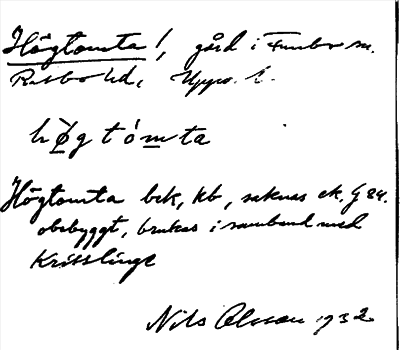 Högtomta!, gård i Funbo sn.
Rasbo hd, Upps. l.
høgtómta
Högtomta bek, kb, saknas ek, G 84.
obebyggt, brukas i samband med
Krisslinge
Nils Olsson 1932